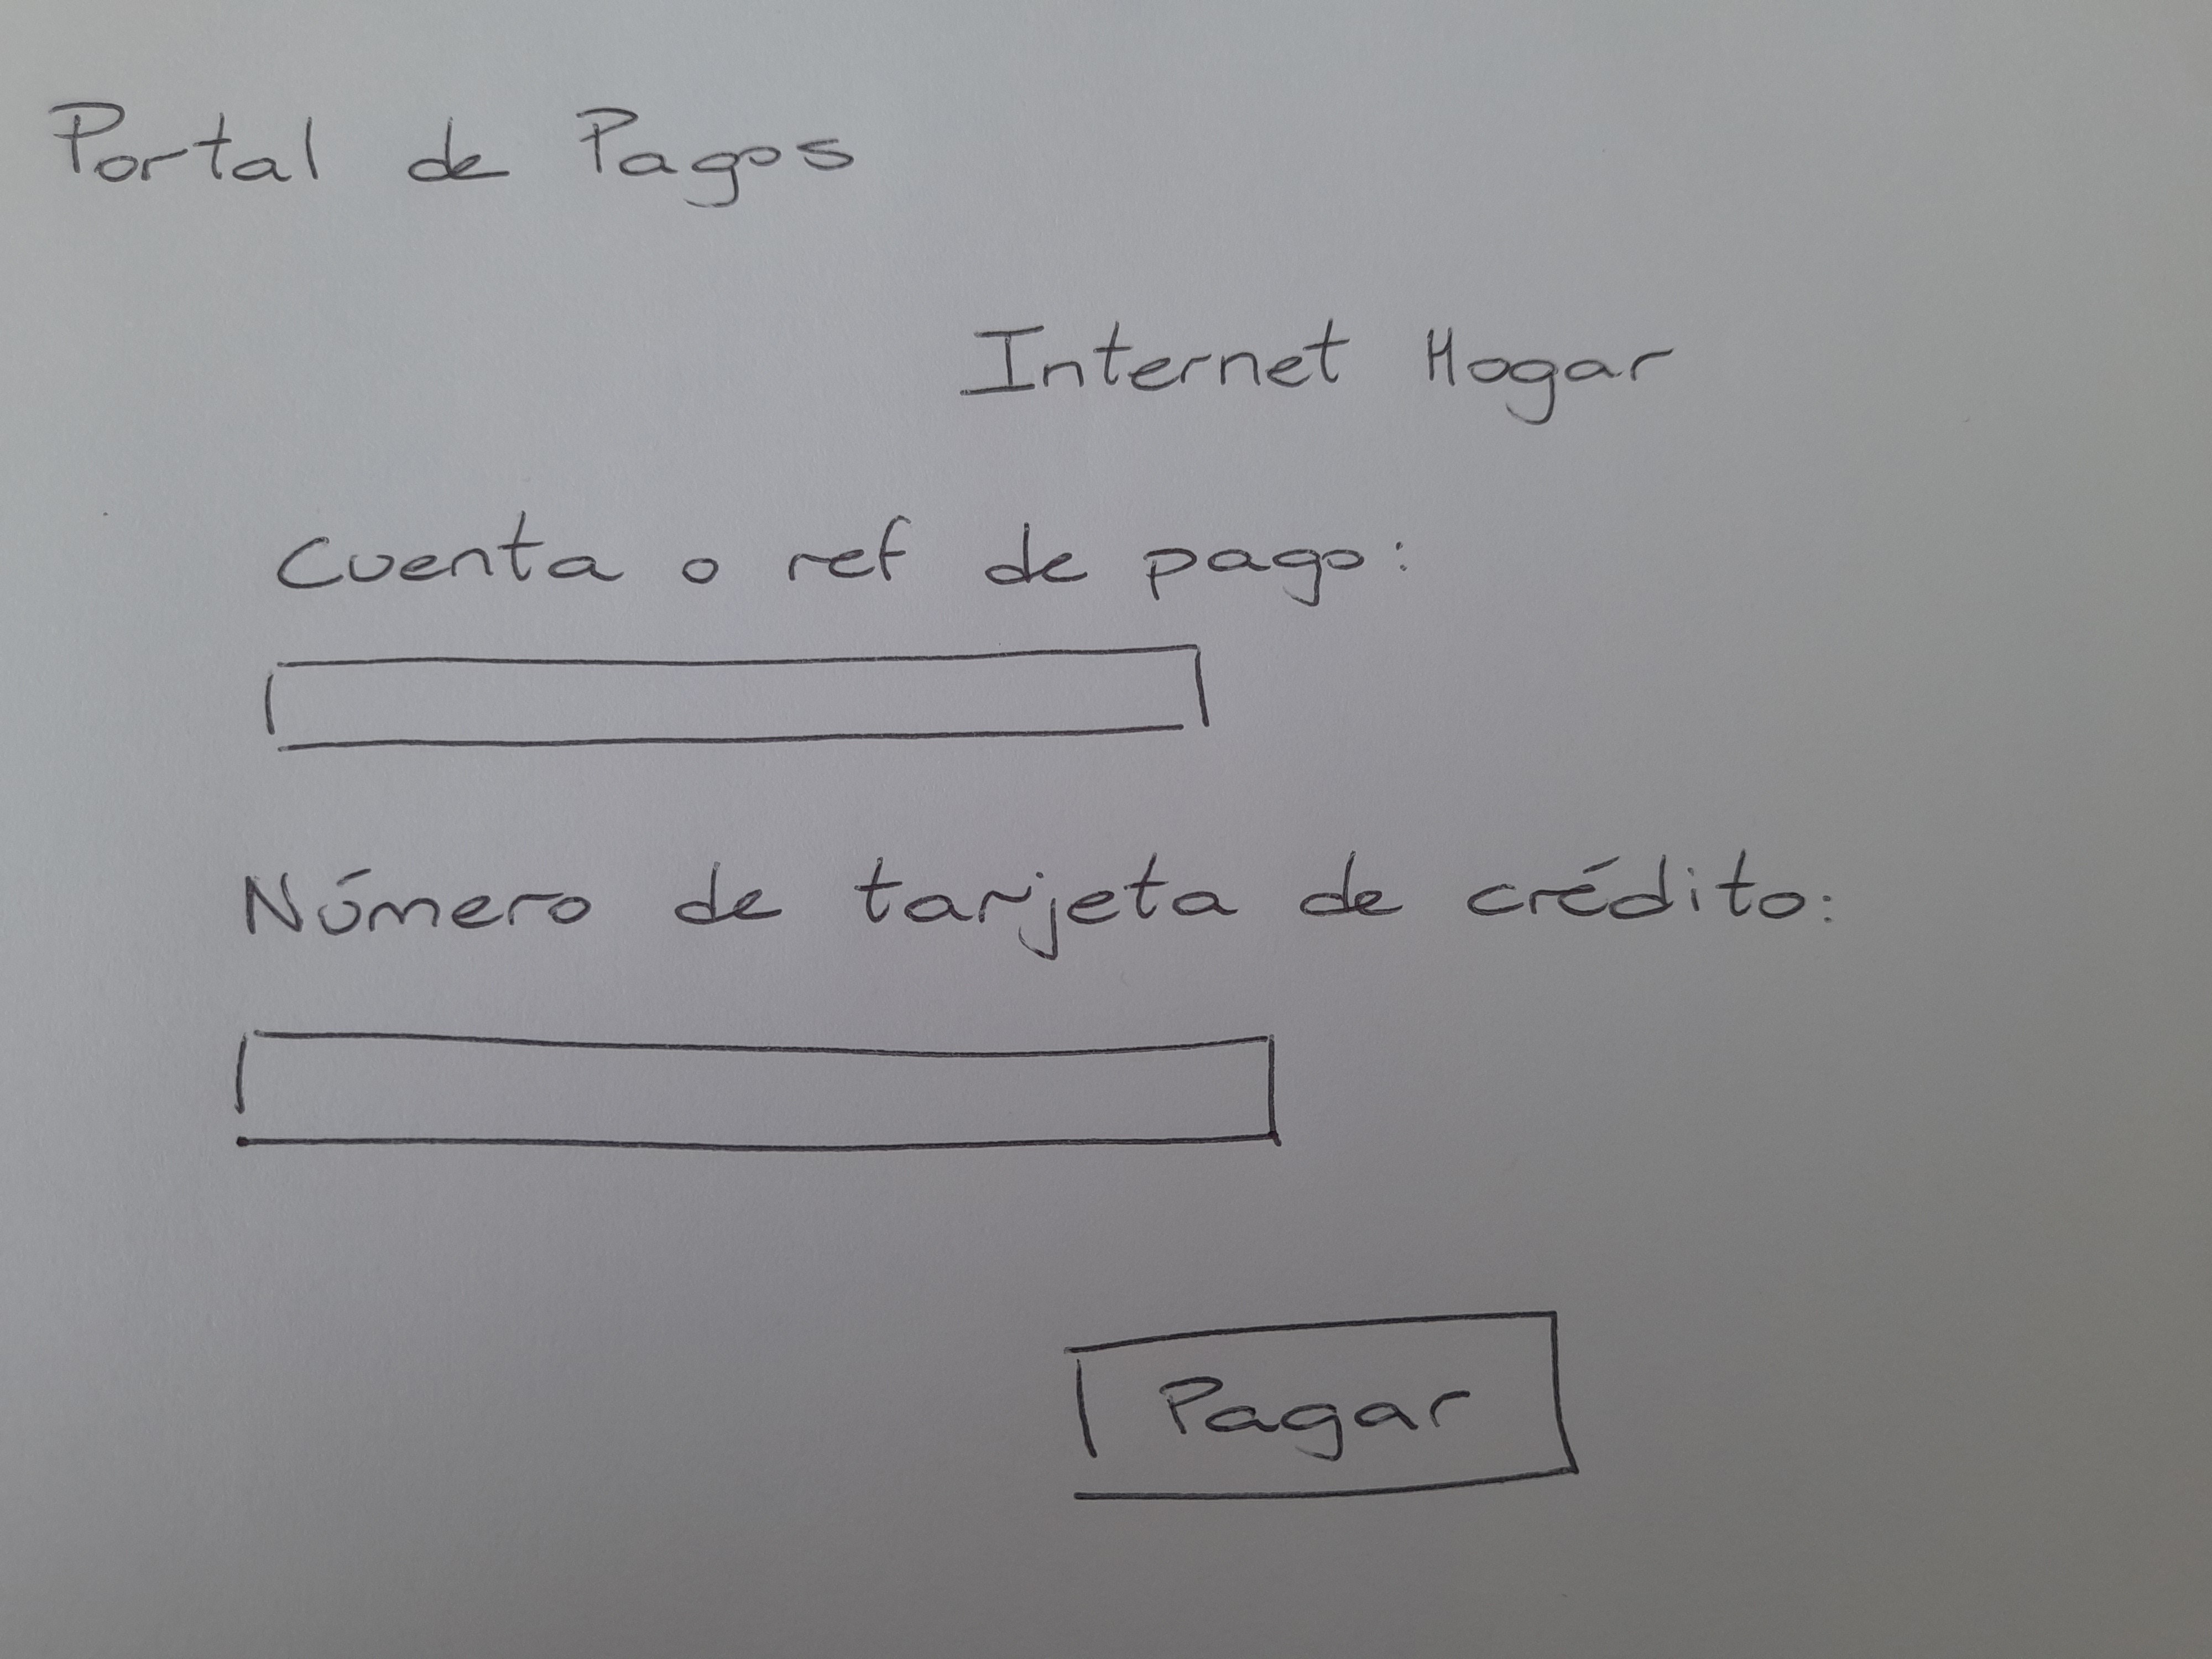 Portal de Pagos
Internet Hogar
Cuenta o ref de pago:
Número de tarjeta de crédito:
Pagar